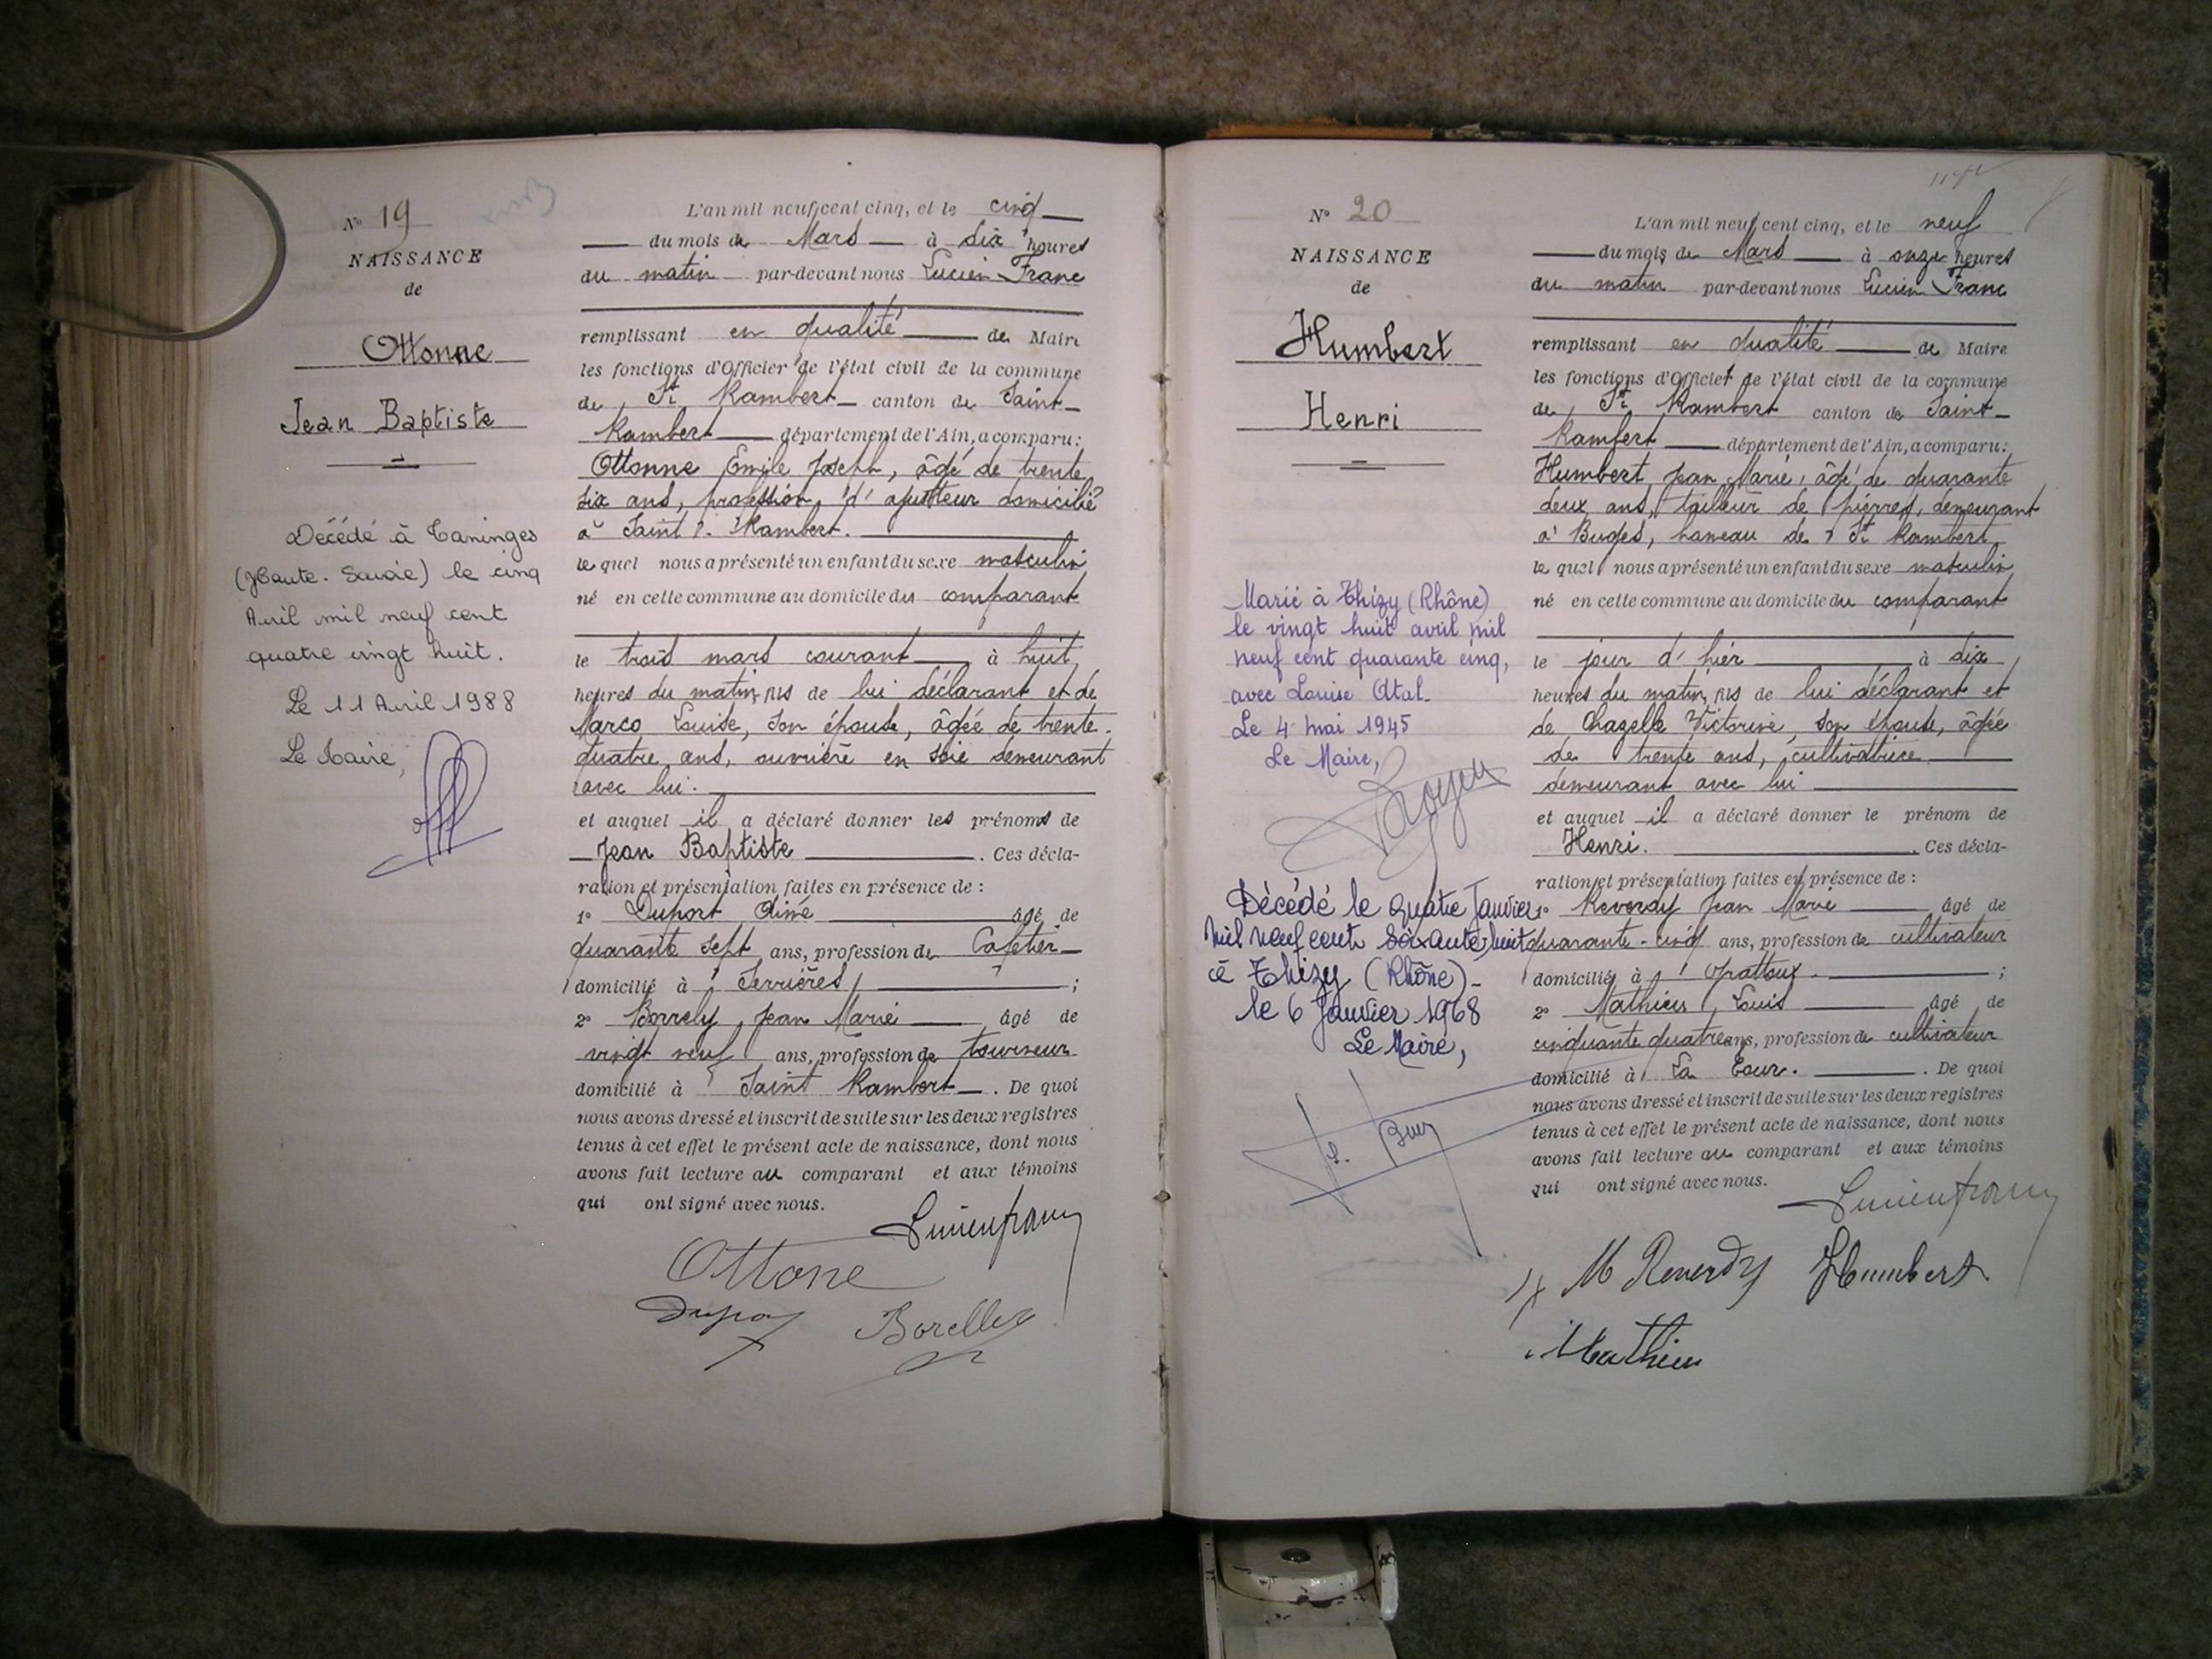 N° 19
NAISSANCE
de
Ottonne
Jean Baptiste
Décédé à Taninges
(Haute-Savoie) le cinq
Avril mil neuf cent
quatre vingt huit.
Le 11 Avril 1988
Le Maire,
L'an mil neuf cent cinq, et le cinq
du mois de Mars à dix heures
du matin par-devant nous Lucien Franc
remplissant en qualité de Maire
les fonctions d'Officier de l'état civil de la commune
de St Rambert canton de Saint-
Rambert département de l'Ain, a comparu:
Ottonne Emile Joseph, âgé de trente
six ans, profession d'ajusteur domicilié
à Saint-Rambert.
lequel nous a présenté un enfant du sexe masculin
né en cette commune au domicile du comparant
le trois mars courant à huit
heures du matin, fils de lui déclarant et de
Marco Louise, son épouse, âgée de trente-
quatre ans, ouvrière en soie demeurant
avec lui.
et auquel il a déclaré donner les prénoms de
Jean Baptiste. Ces décla-
ration et présentation faites en présence de :
1° Duport Aimé âgé de
quarante sept ans, profession de Cafetier
domicilié à Serrières ;
2° Borrely Jean Marie âgé de
vingt neuf ans, profession de tourneur
domicilié à Saint Rambert. De quoi
nous avons dressé et inscrit de suite sur les deux registres
tenus à cet effet le présent acte de naissance, dont nous
avons fait lecture au comparant et aux témoins
qui ont signé avec nous.
Lucien franc
Ottone
Borelly
N° 20
NAISSANCE
de
Humbert
Henri
Marié à Thizy (Rhône)
le vingt huit avril mil
neuf cent quarante cinq,
avec Louise Atal.
Le 4 mai 1945
Le Maire,
Décédé le quatre Janvier
mil neuf cent soixante huit
à Thizy (Rhône)-
le 6 Janvier 1968
Le Maire,
L'an mil neuf cent cinq, et le neuf
du mois de Mars à onze heures
du matin par-devant nous Lucien Franc
remplissant en qualité de Maire
les fonctions d'Officier de l'état civil de la commune
de St Rambert canton de Saint-
Rambert département de l'Ain, a comparu:
Humbert Jean Marie, âgé de quarante
deux ans, tailleur de pierres, demeurant
à Buges, hameau de St Rambert
lequel nous a présenté un enfant du sexe masculin
né en cette commune au domicile du comparant
le jour d'hier à dix
heures du matin, fils de lui déclarant et
de Chazelle Victorine, son épouse, âgée
de trente ans, cultivatrice
demeurant avec lui
et auquel il a déclaré donner le prénom de
Henri. Ces décla-
ration et présentation faites en présence de :
1° Reverdy Jean Marie âgé de
quarante-cinq ans, profession de cultivateur
domicilié à ;
2° Mathieu Louis âgé de
cinquante quatre ans, profession de cultivateur
domicilié à La Cour. De quoi
nous avons dressé et inscrit de suite sur les deux registres
tenus à cet effet le présent acte de naissance, dont nous
avons fait lecture au comparant et aux témoins
qui ont signé avec nous.
Lucien franc
M Reverdy Humbert
Mathieu